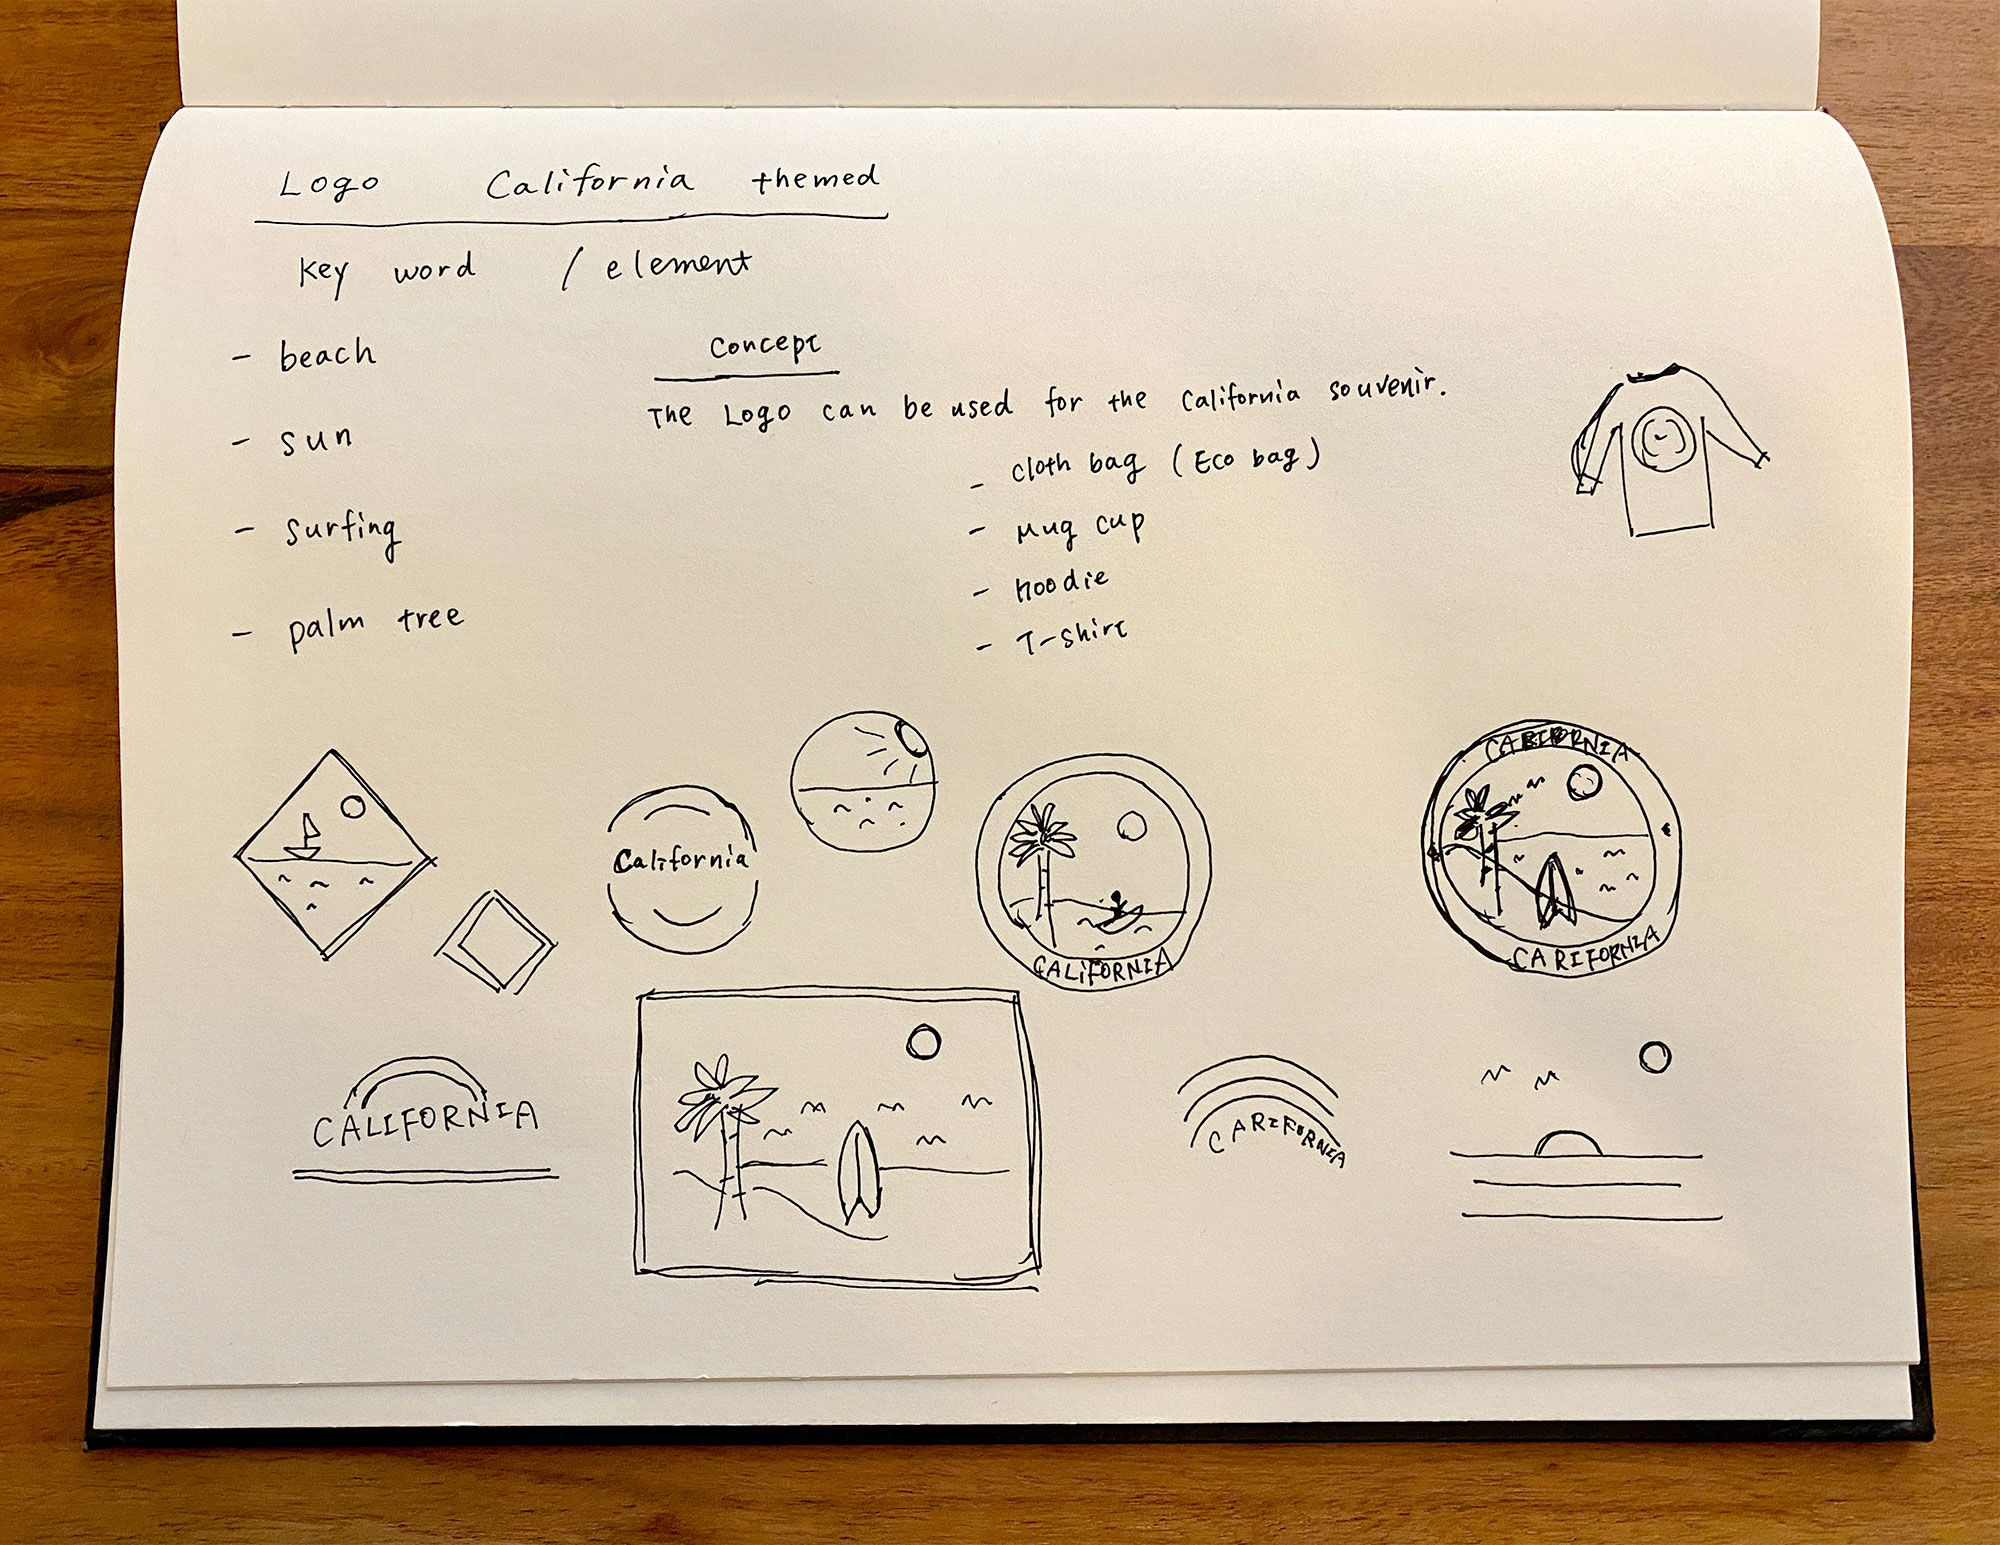 Logo California themed
Key word / element
- beach
- sun
- surfing
- palm tree
Concept
The Logo can be used for the California souvenir.
- cloth bag (Eco bag)
- Mug cup
- hoodie
- T-shirt
California
CALIFORNIA
CARIFORNIA
CALIFORNIA
CARIFORNIA